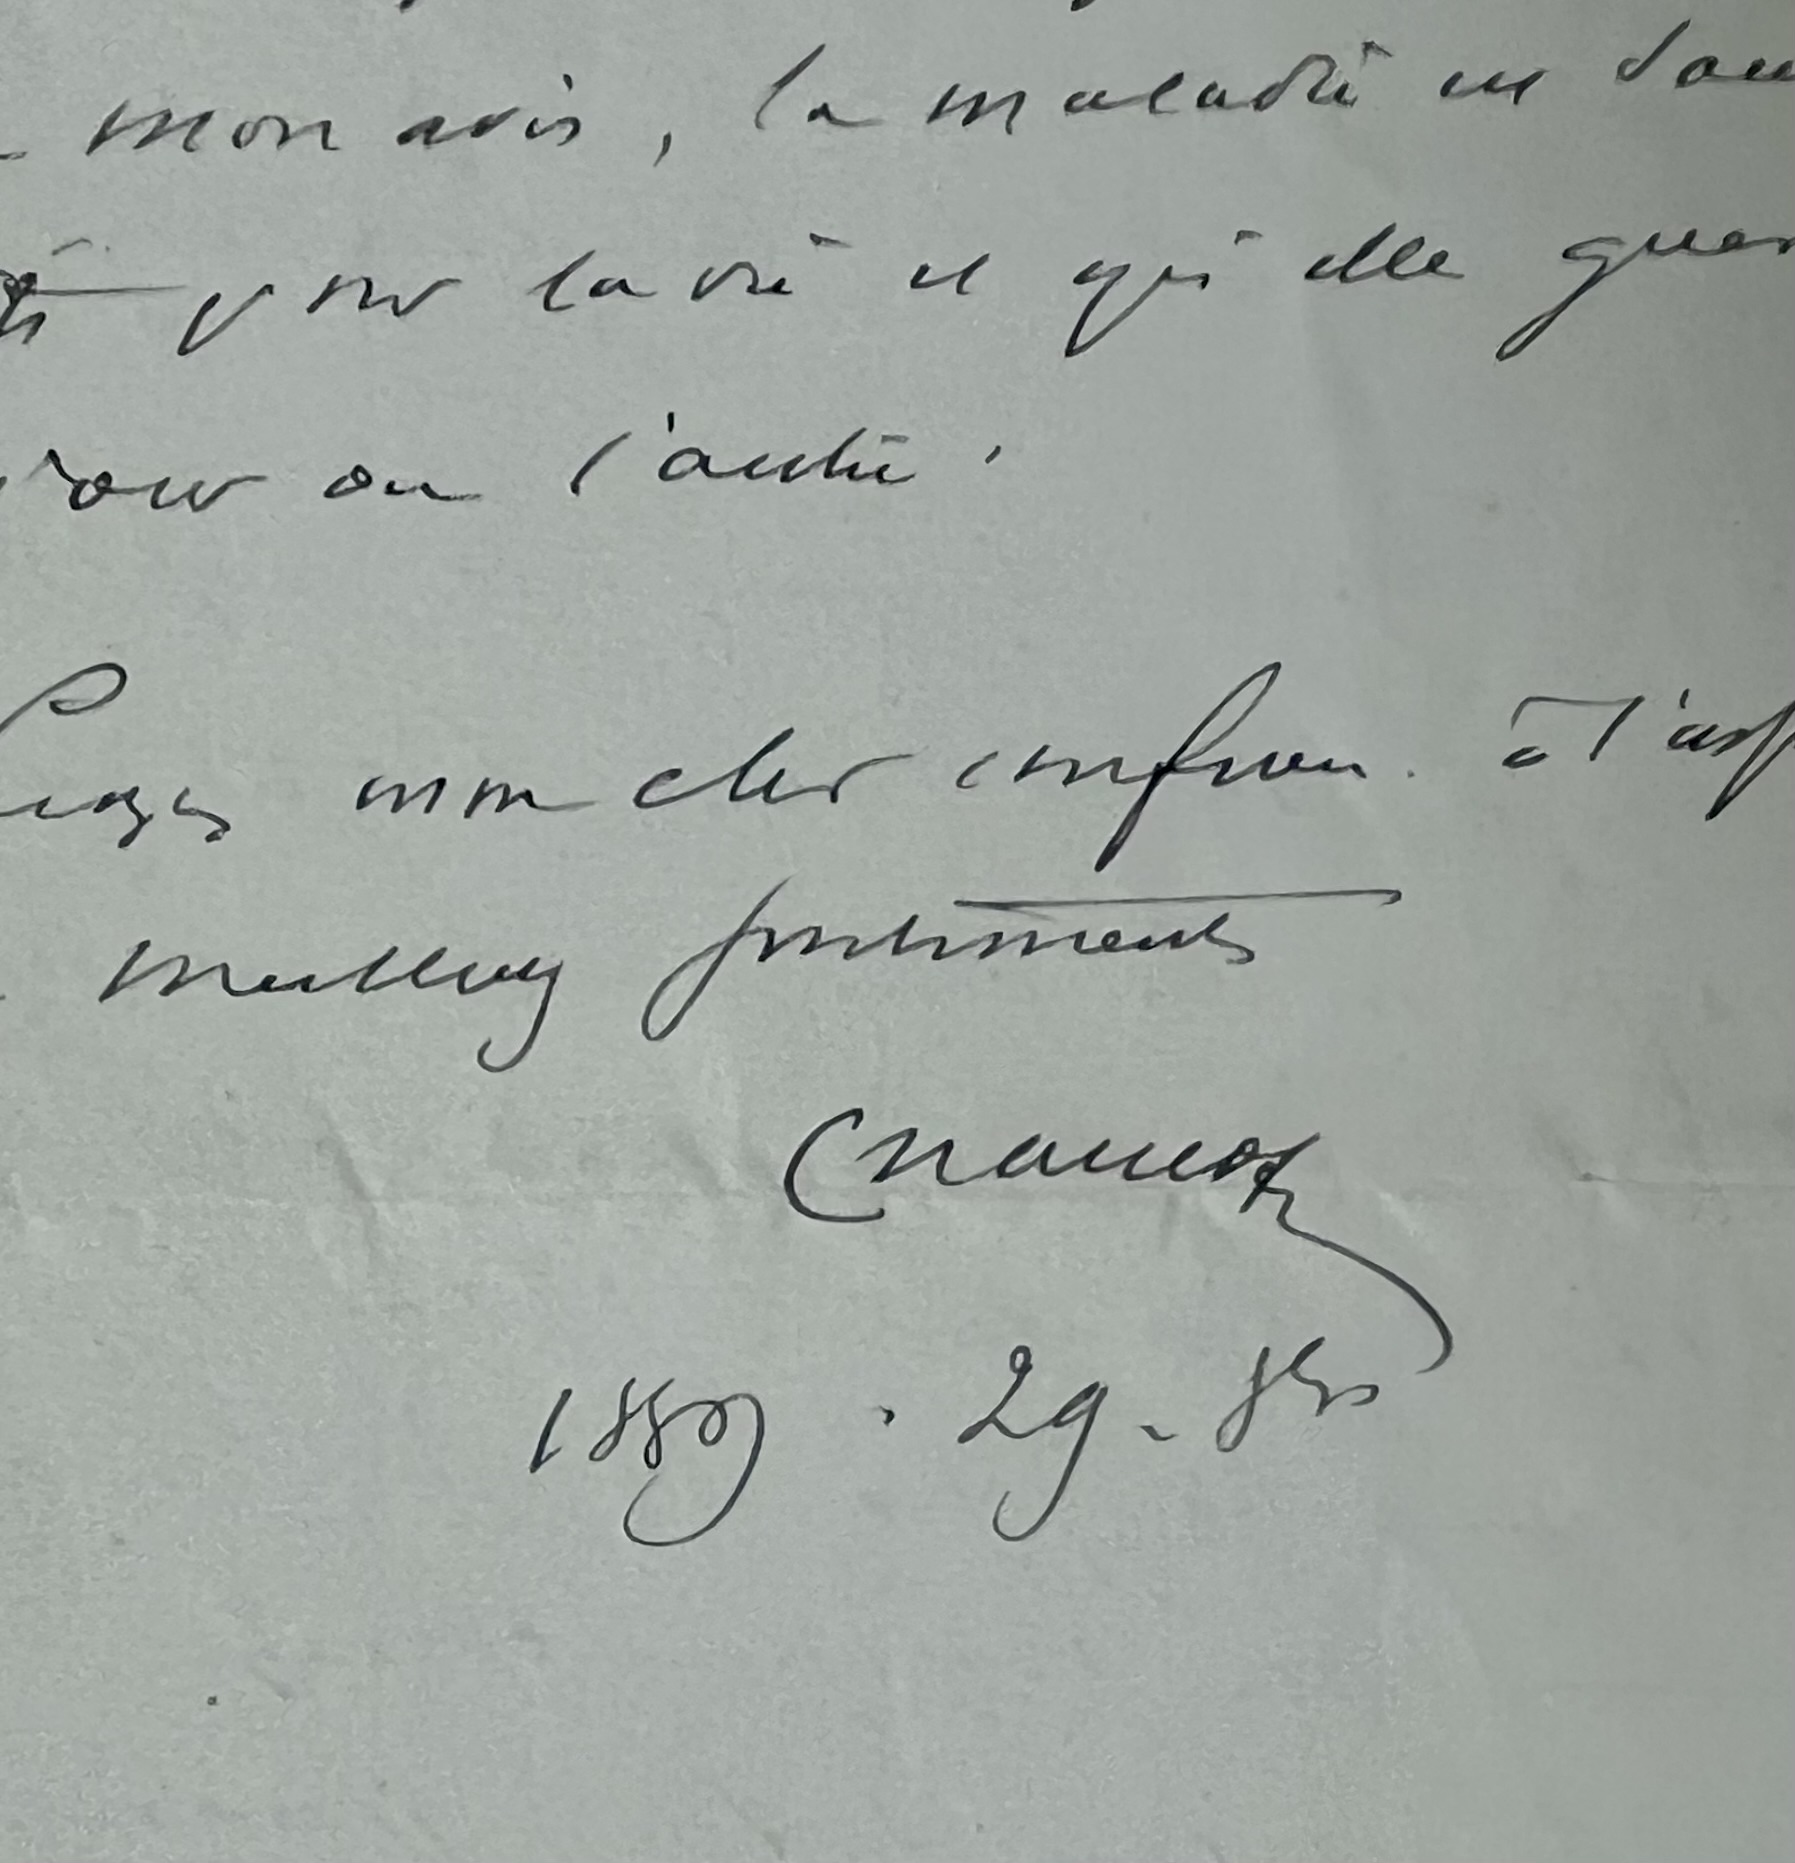 mon avis, la maladie est sans
pour la vie et qu'elle guer
jour ou l'autre.
Croyez mon cher confrère à l'ass
meilleurs sentiments
Charcot
1889. 29 - 8bre